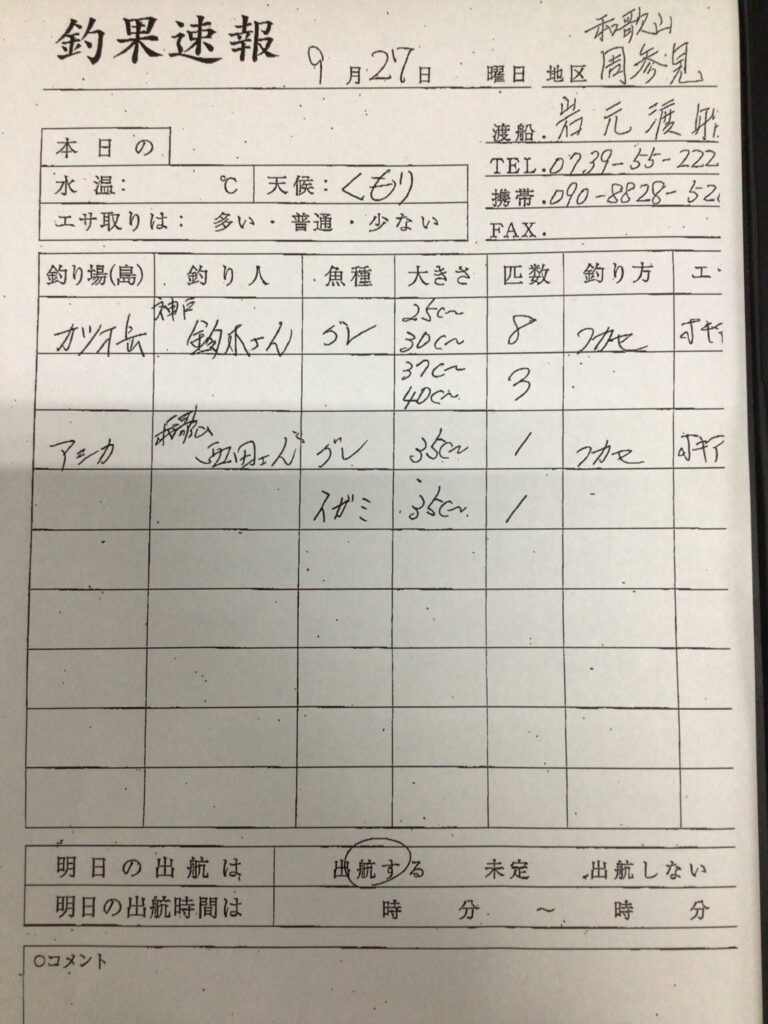 釣果速報 9月27日 曜日 地区 和歌山 周参見
渡船. 岩元渡船
本日の
TEL. 0739-55-222
水温: ℃ 天候: くもり
携帯. 090-8828-52
エサ取りは: 多い・普通・少ない
FAX.
釣り場(島) 釣り人 魚種 大きさ 匹数 釣り方 エ
カツオ島 神戸 鈴木さん グレ 25cm~30cm 8 フカセ オキア
37cm~40cm 3
アシカ 和歌山 西田さん グレ 35cm 1 フカセ オキア
イガミ 35cm 1
明日の出航は 出航する 未定 出航しない
明日の出航時間は 時 分 ~ 時 分
○コメント